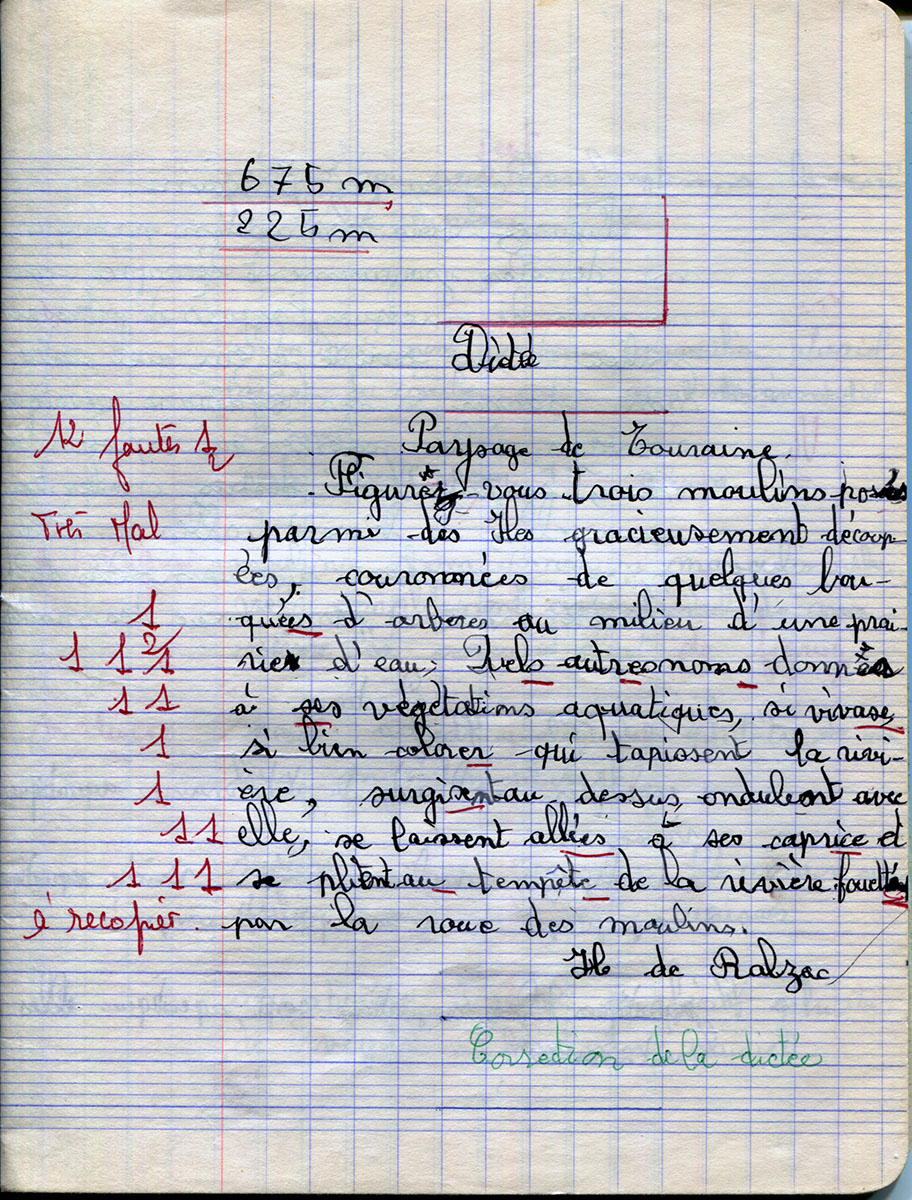 675 m
225 m
Dictée
12 fautes 1/2
Paysage de Touraine.
Figurez-vous trois moulins posés
Très Mal
parmi des Iles gracieusement découp-
ées, couronnées de quelques bou-
1
quées d'arbres au milieu d'une prai-
1 1 2 1
rie d'eau; Quels autres noms donnés
1 1
à ses végétations aquatiques, si vivase,
1
si bien colorer qui tapissent la rivi-
1
ère, surgisent au dessus ondulent avec
1 1
elle, se laissent allées à ses caprice et
1 1 1
se plient au tempête de la rivière fouetté
é recopier.
par la roue des moulins.
H de Balzac
Corection de la dictée